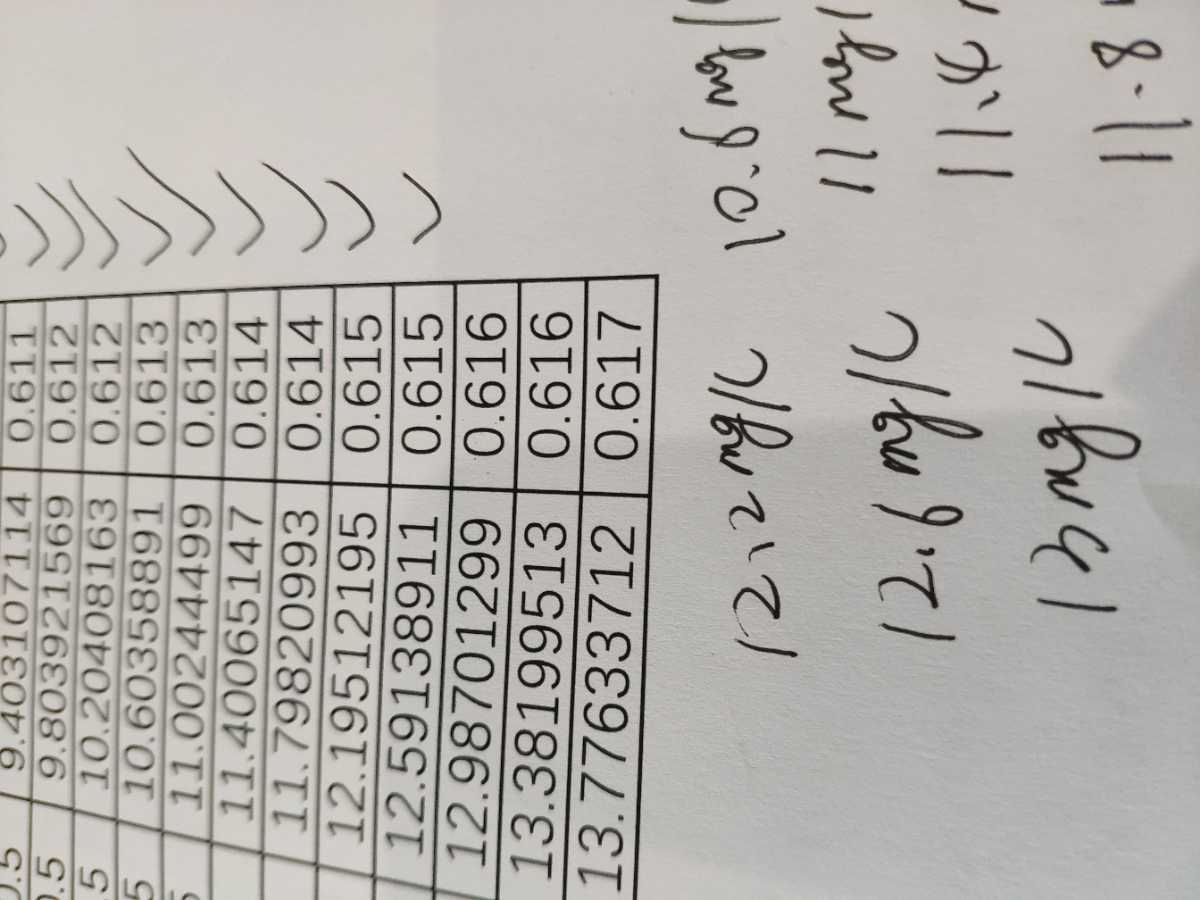 0.5 9.403107114 0.611
0.5 9.803921569 0.612
.5 10.20408163 0.612
5 10.60358891 0.613
5 11.00244499 0.613
11.40065147 0.614
11.79820993 0.614
12.19512195 0.615
12.59138911 0.615
12.98701299 0.616
13.38199513 0.616
13.77633712 0.617
12.2 mg/L 10.8 mg/
12.6 mg/L 11 mg/
13 mg/L 11.4
11.8